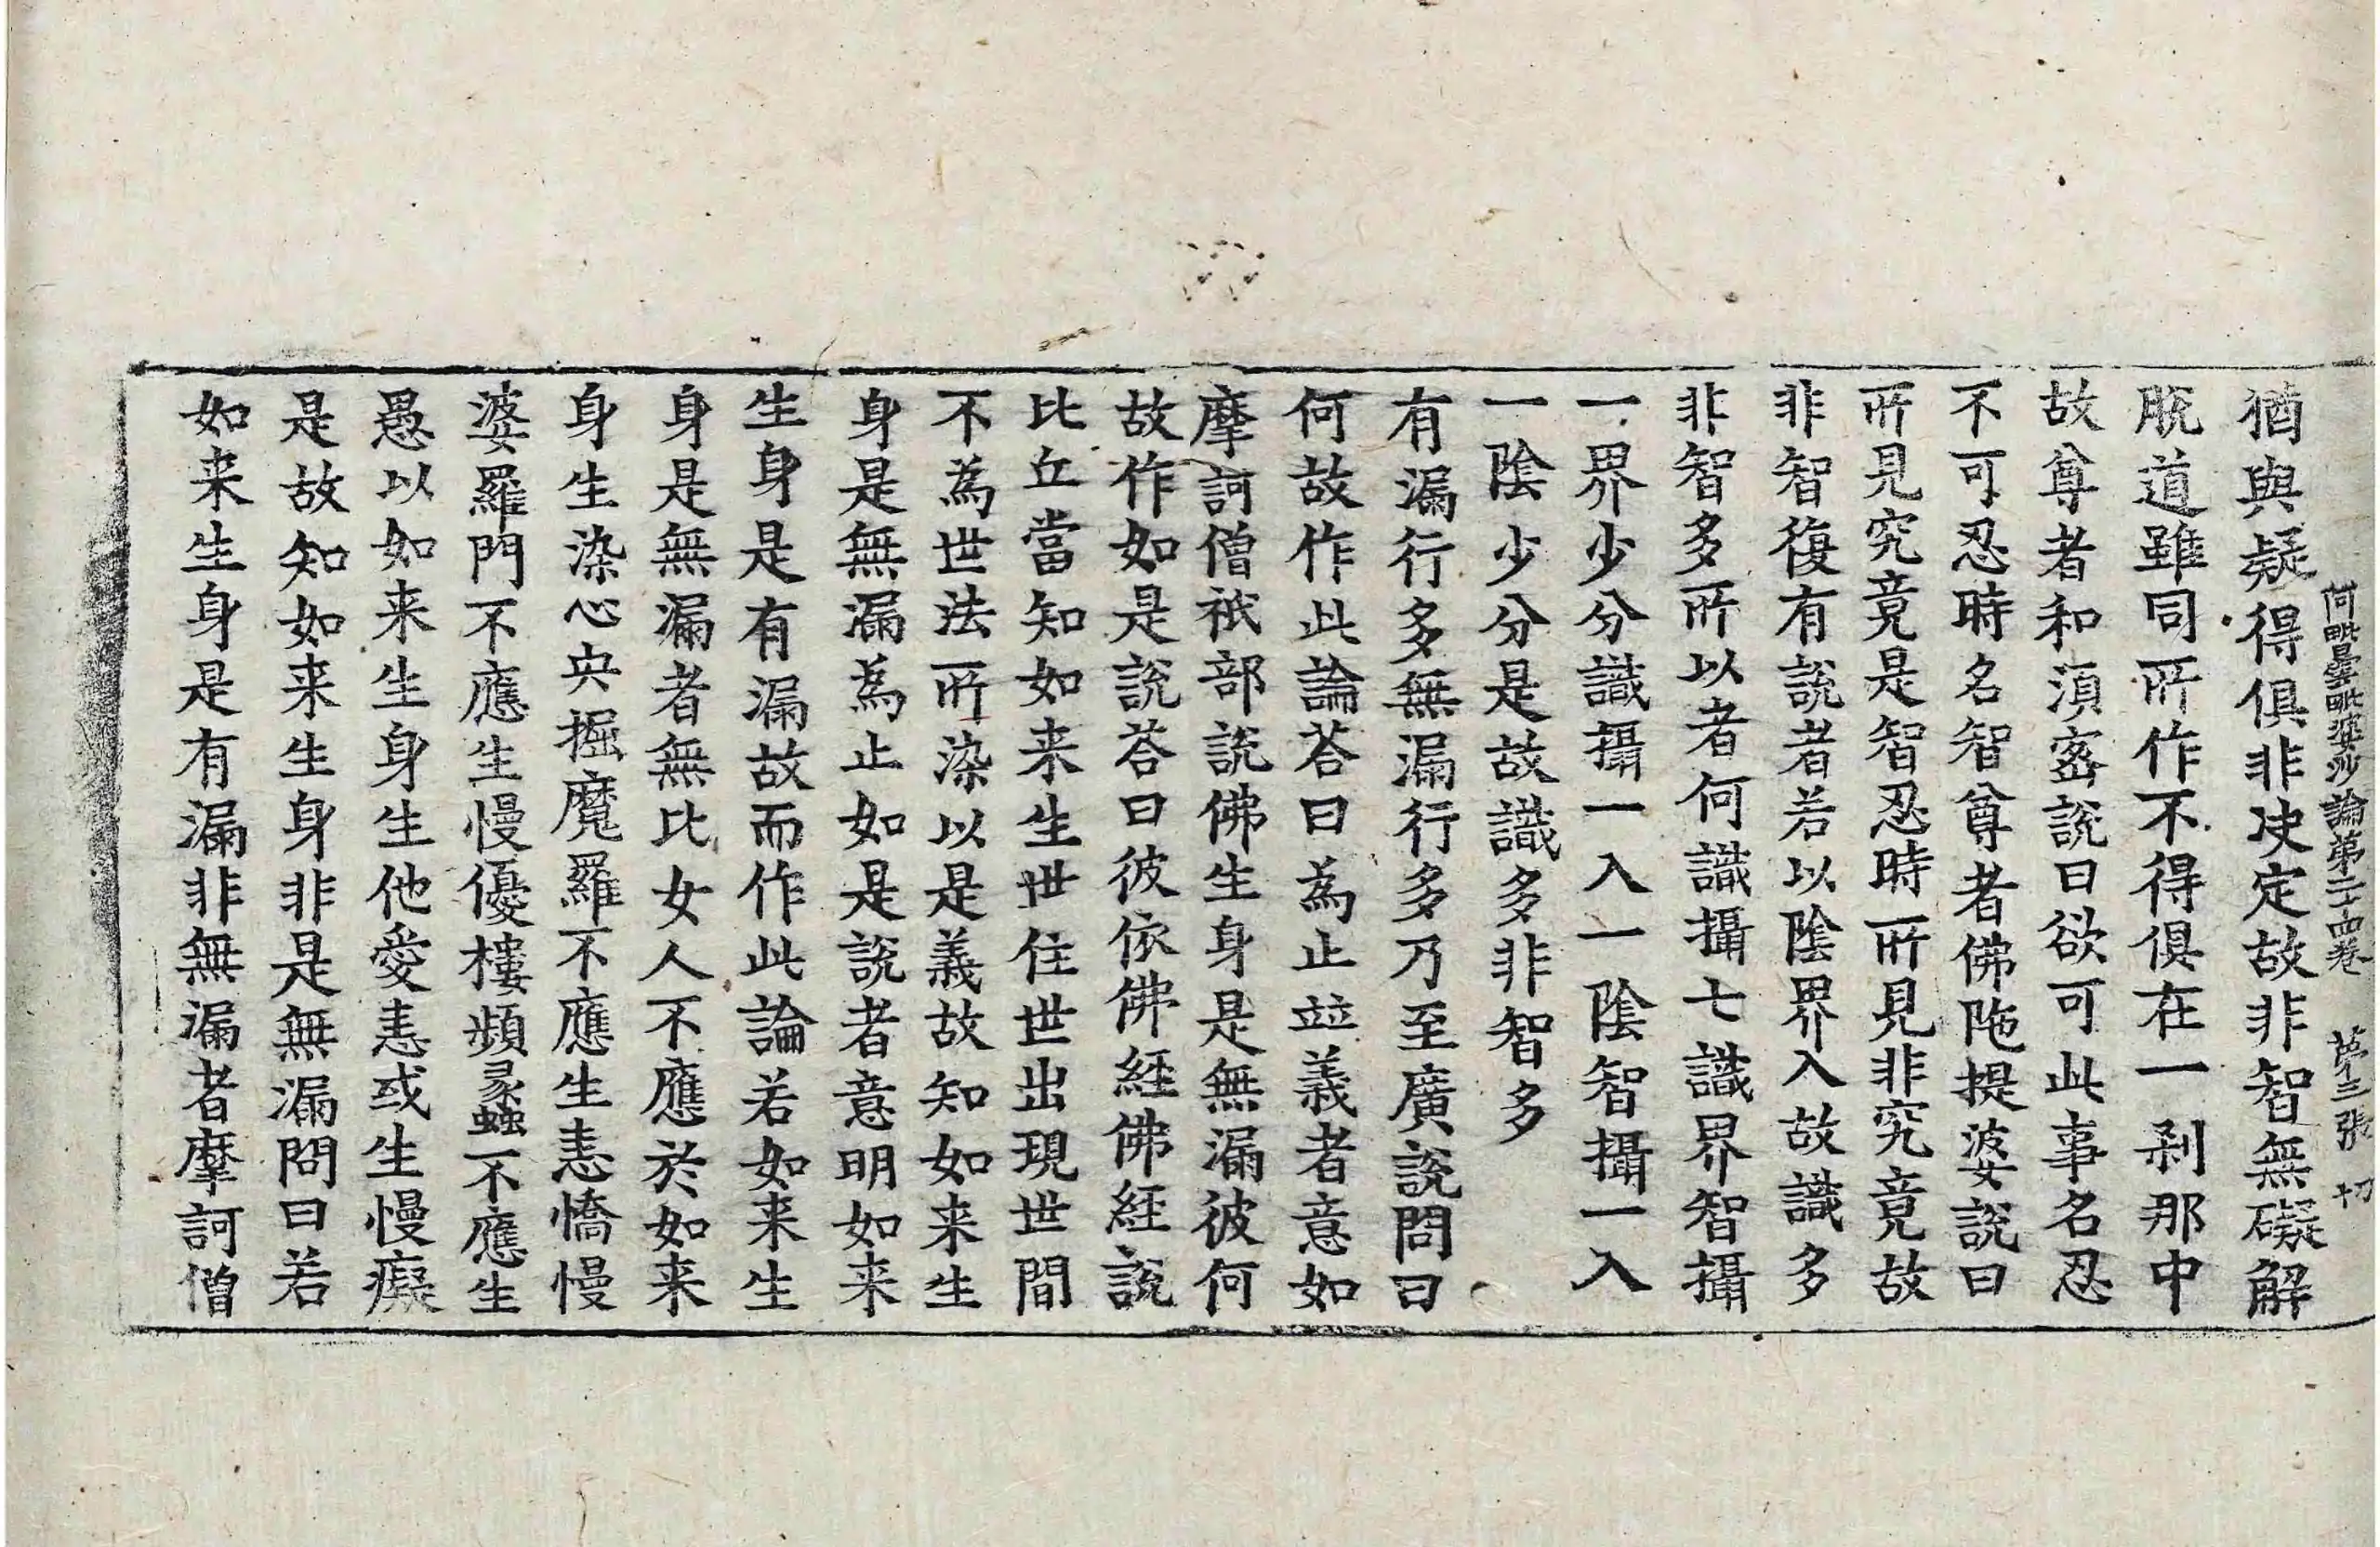 阿毗曇毗婆沙論第二十四卷 第三張 切
猶與疑得俱非决定故非智無礙解
脫道雖同所作不得俱在一刹那中
故尊者和湏蜜說曰欲可此事名忍
不可忍時名智尊者佛陁提婆說曰
所見究竟是智忍時所見非究竟故
非智復有說者若以陰界入故識多
非智多所以者何識攝七識界智攝
一界少分識攝一入一陰智攝一入
一陰少分是故識多非智多
有漏行多無漏行多乃至廣說問曰
何故作此論荅曰為止並義者意如
摩訶僧祇部說佛生身是無漏彼何
故作如是說荅曰彼依佛經佛經說
比丘當知如来生世住世出現世間
不為世法所染以是義故知如来生
身是無漏為止如是說者意明如来
生身是有漏故而作此論若如来生
身是無漏者無比女人不應於如来
身生染心央掘魔羅不應生恚憍慢
婆羅門不應生慢優樓頻䗍不應生
愚以如来生身生他愛恚或生慢癡
是故知如来生身非是無漏問曰若
如来生身是有漏非無漏者摩訶僧